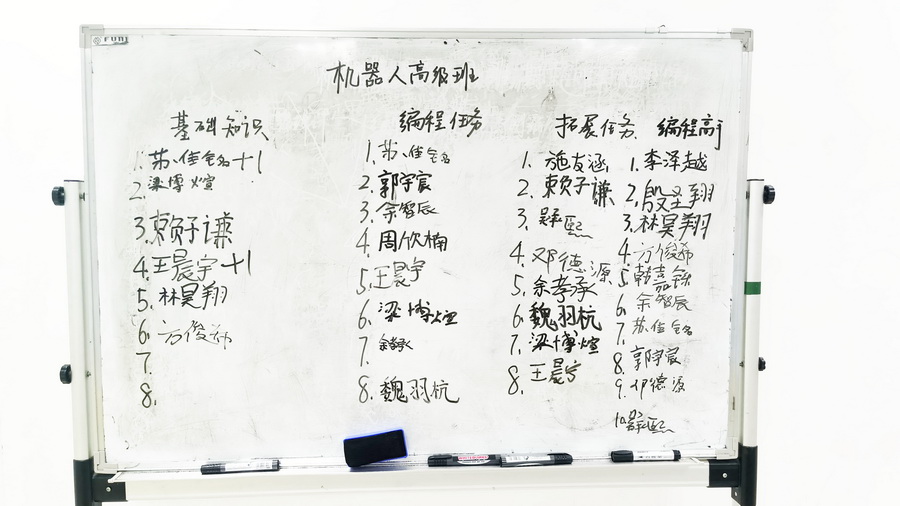 机器人高级班
基础知识
1. 苏佳铭+1
2. 梁博煊
3. 赖子谦
4. 王晨宇+1
5. 林昊翔
6. 方俊希
7.
8.
编程任务
1. 苏佳铭
2. 郭宇宸
3. 余智辰
4. 周欣楠
5. 王晨宇
6. 梁博煊
7.
8. 魏羽杭
拓展任务
1. 施友涵
2. 赖子谦
3.
4. 邓德源
5. 余孝承
6. 魏羽杭
7. 梁博煊
8. 王晨宇
编程高手
1. 李泽越
2. 殷圣翔
3. 林昊翔
4. 方俊希
5. 韩嘉铄
6. 余智辰
7. 苏佳铭
8. 郭宇宸
9. 邓德源
10.